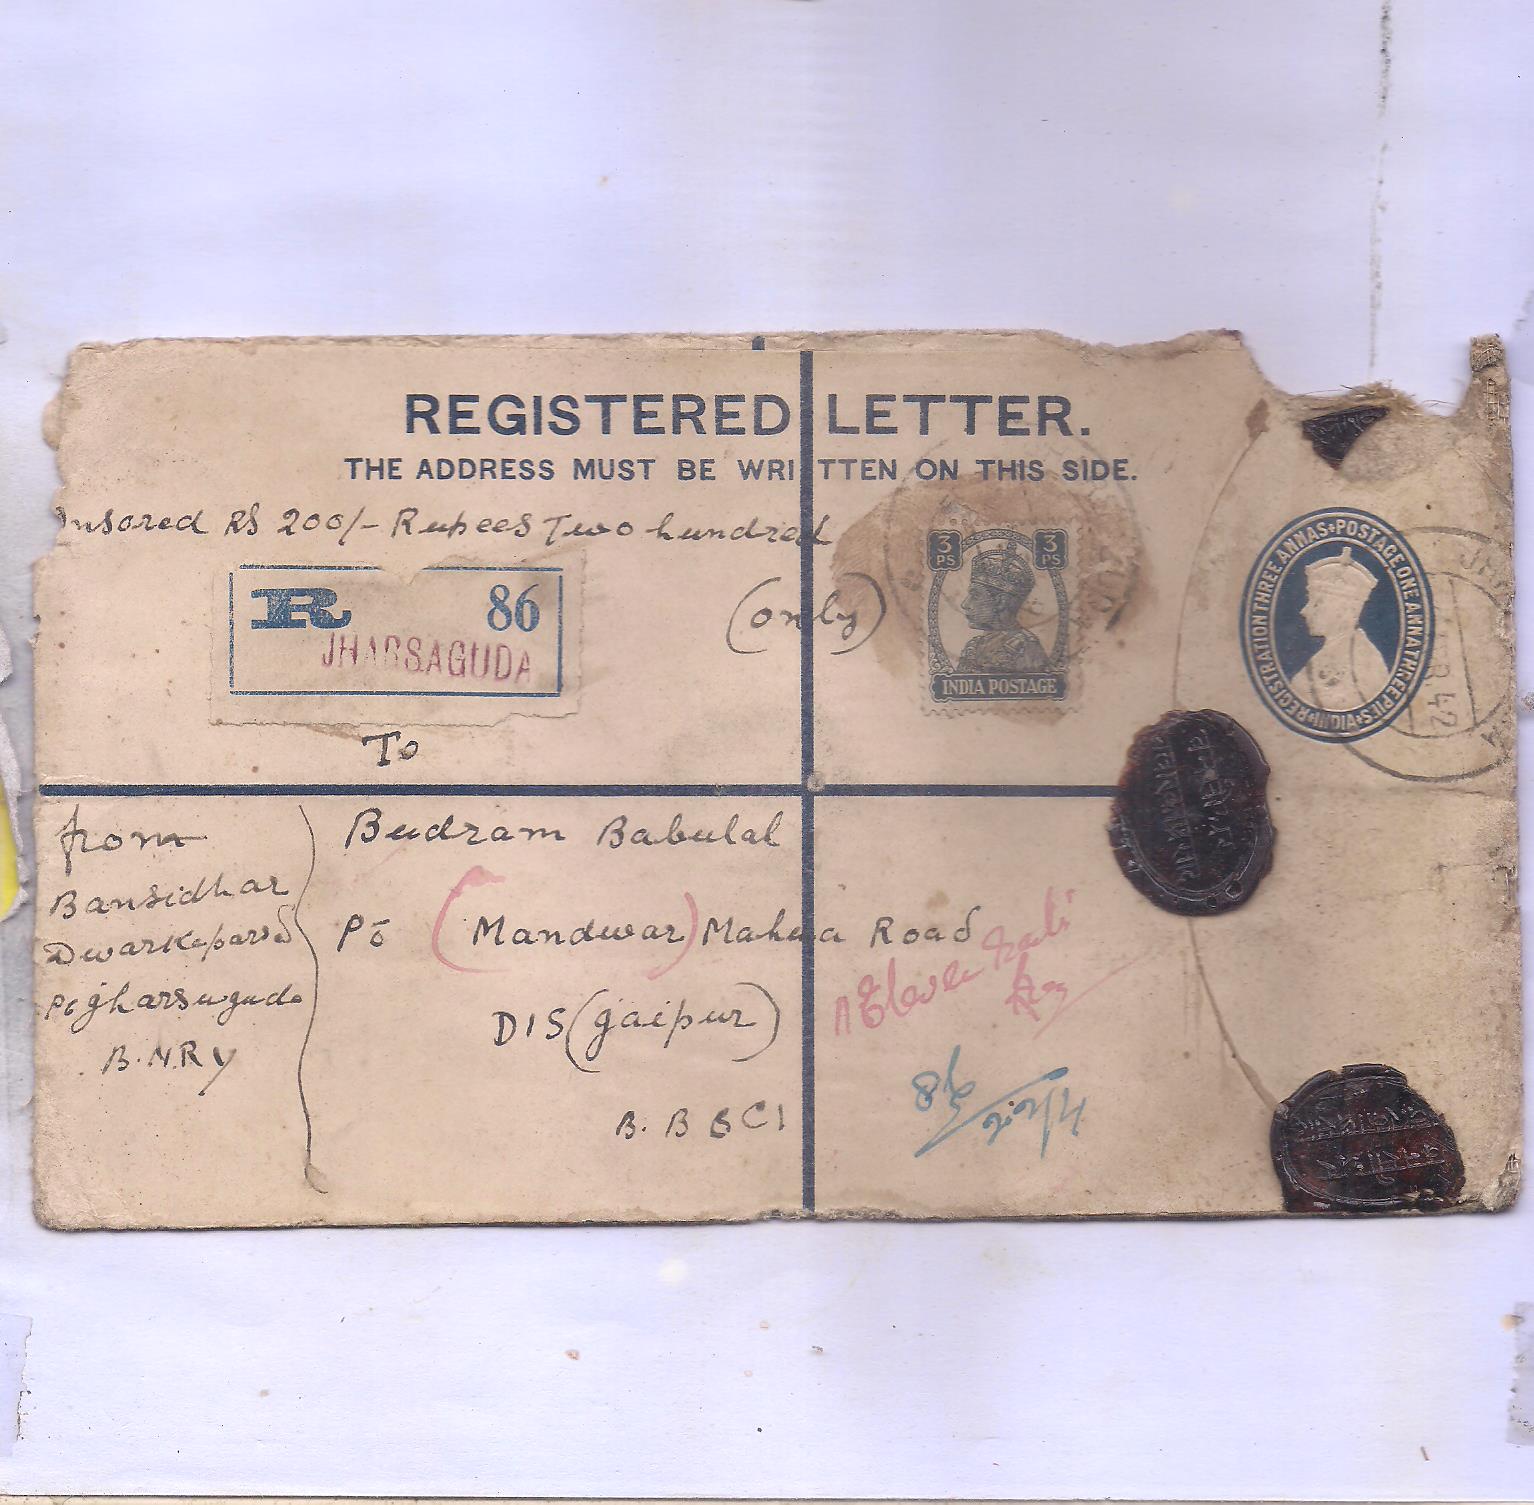 REGISTERED LETTER.
THE ADDRESS MUST BE WRITTEN ON THIS SIDE.
Insored RS 200/- Rupees Two hundred
(only)
R 86
JHARSAGUDA
3 PS 3 PS
INDIA POSTAGE
REGISTRATION THREE ANNAS • POSTAGE ONE ANNA THREE PIES • INDIA
42
To
from
Bansidhar
Po Jharsuguda
B.N.Ry
Budram Babulal
Po (Mandwar) Mahwa Road
DIS (Jaipur)
B. B & C I
86